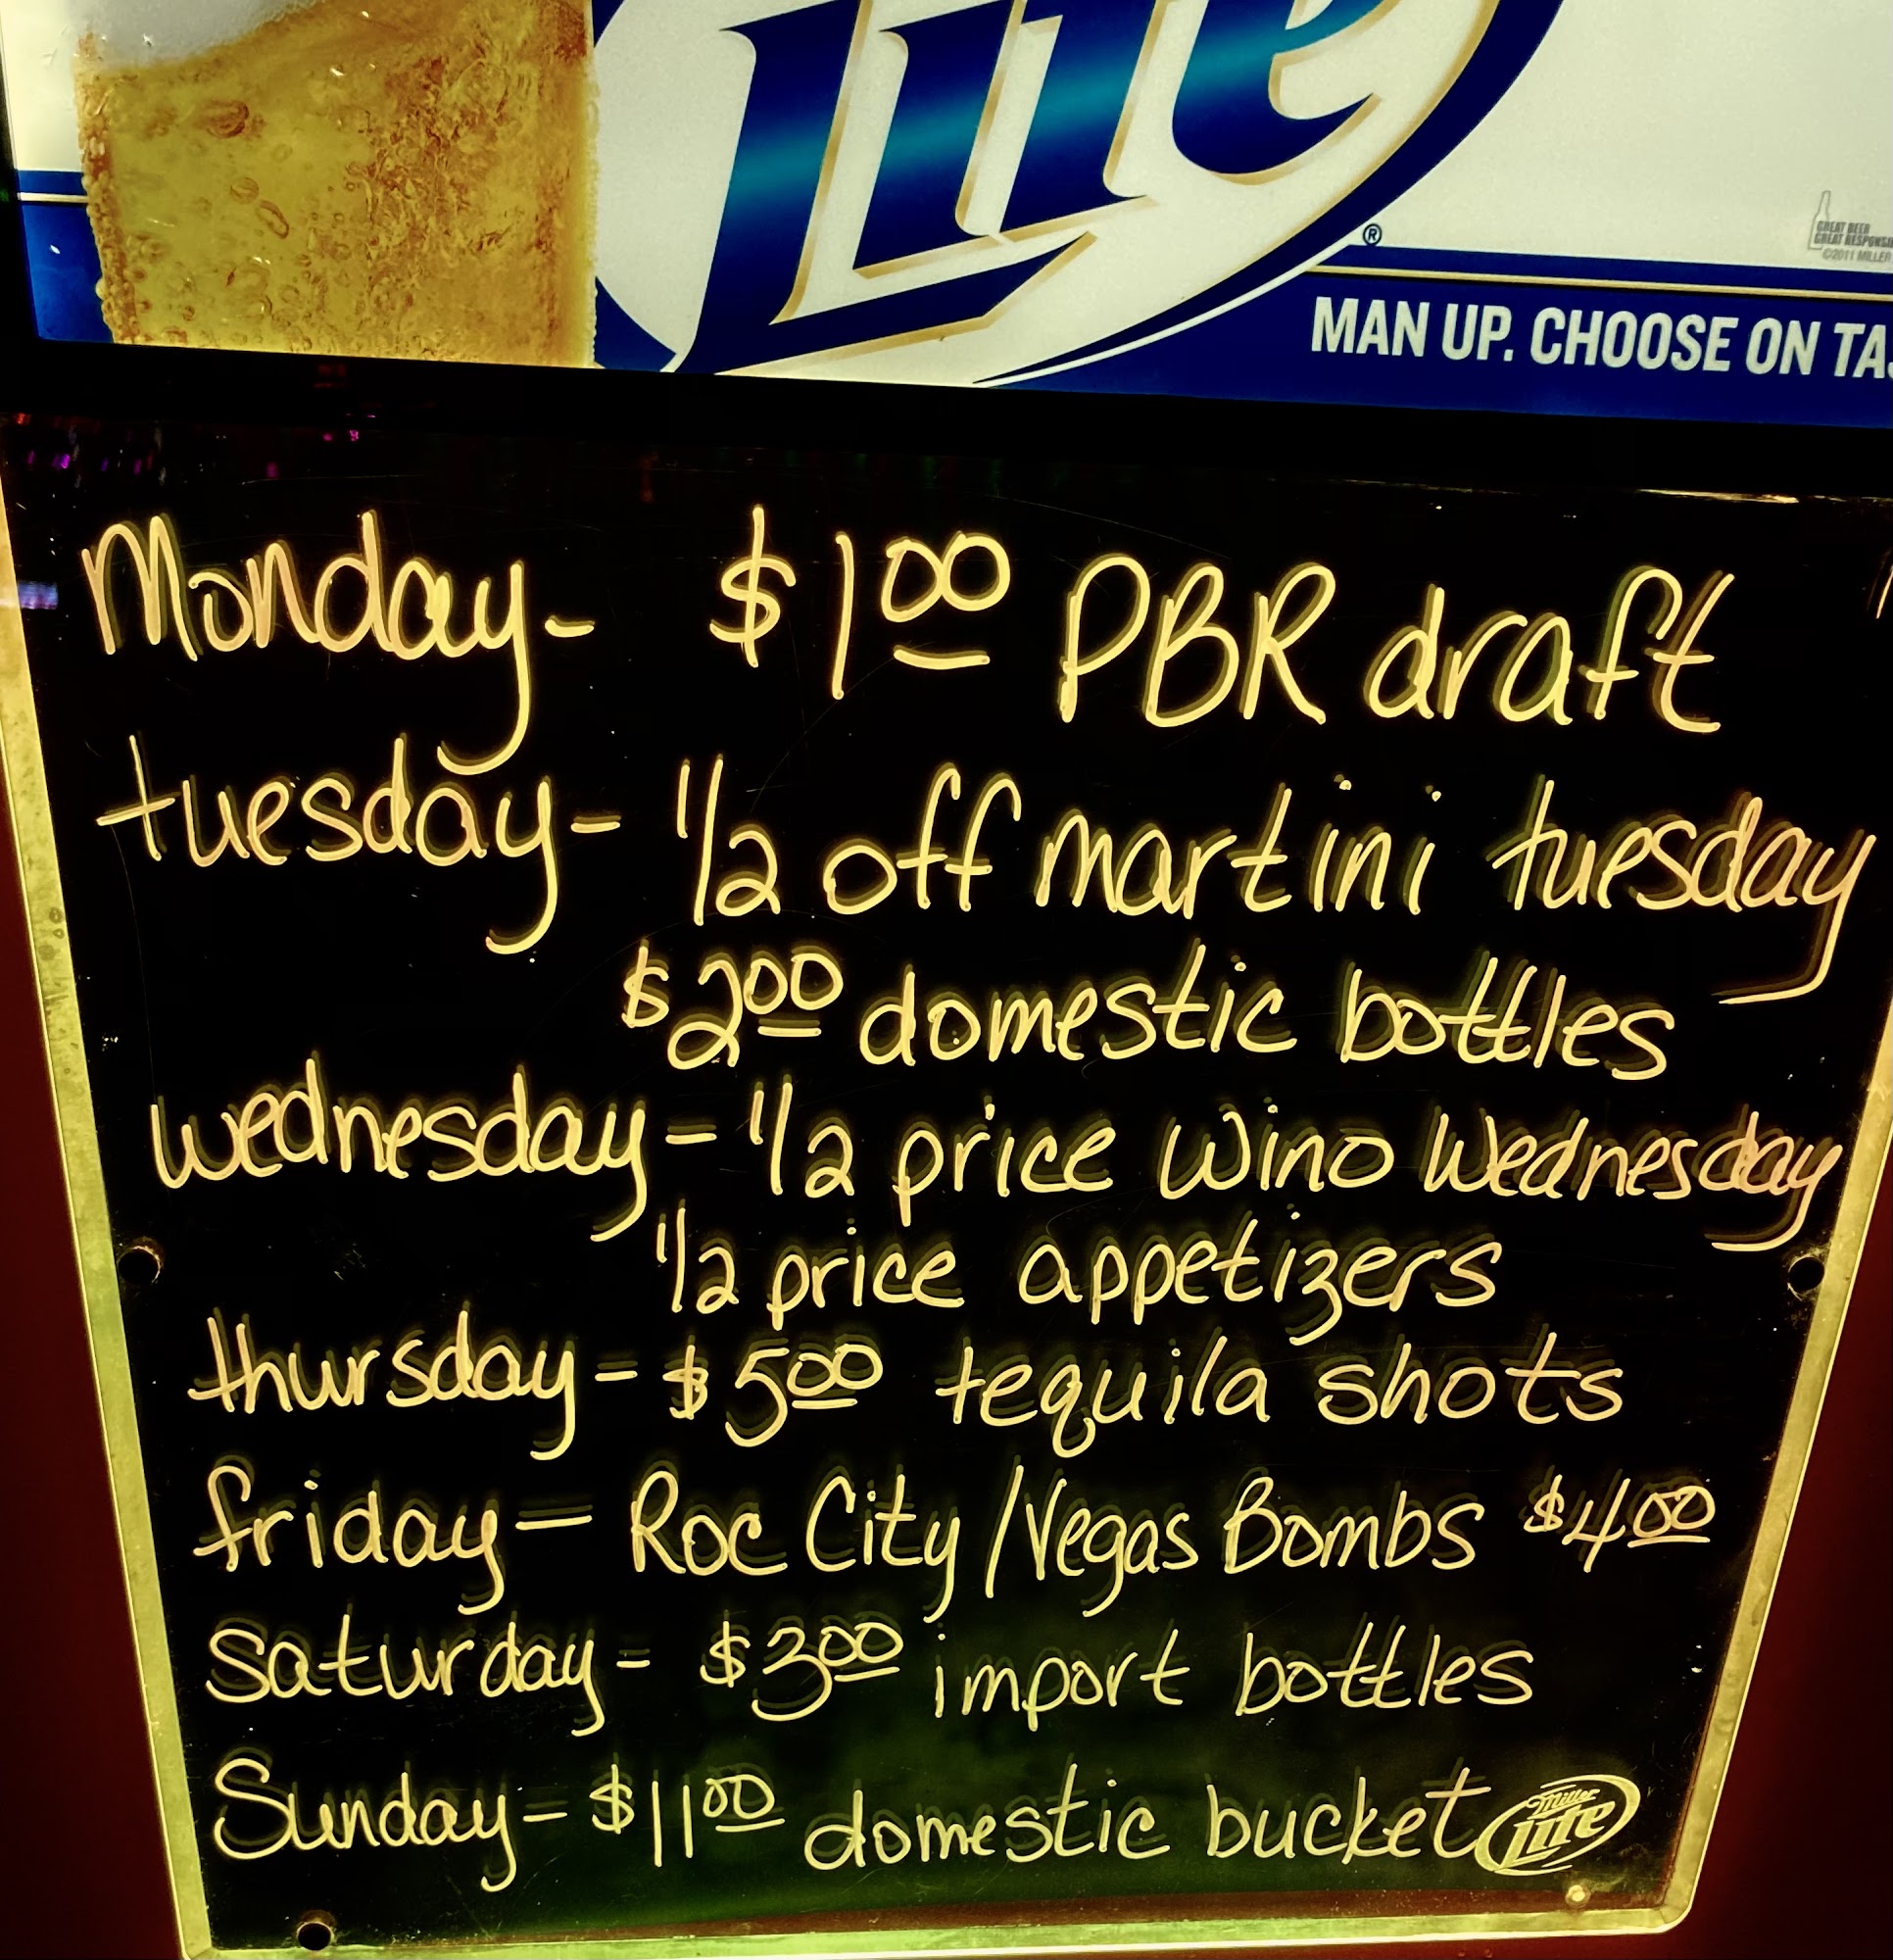 Lite
®
GREAT BEER
GREAT
©2011 MILLER
MAN UP. CHOOSE ON
Monday- $1.00 PBR draft
tuesday- 1/2 off martini tuesday
$2.00 domestic bottles
wednesday- 1/2 price wino Wednesday
1/2 price appetizers
thursday- $5.00 tequila shots
friday- Roc City/Vegas Bombs $4.00
saturday- $3.00 import bottles
Sunday- $11.00 domestic bucket
Miller
Lite